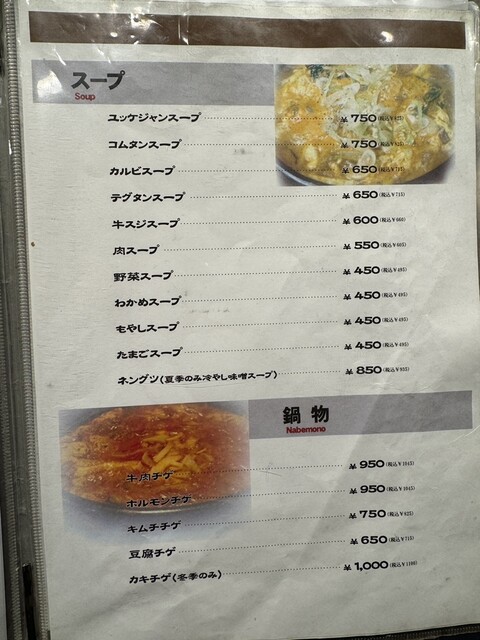 スープ
Soup
ユッケジャンスープ ¥750(税込¥825)
コムタンスープ ¥750(税込¥825)
カルビスープ ¥650(税込¥715)
テグタンスープ ¥650(税込¥715)
牛スジスープ ¥600(税込¥660)
肉スープ ¥550(税込¥605)
野菜スープ ¥450(税込¥495)
わかめスープ ¥450(税込¥495)
もやしスープ ¥450(税込¥495)
たまごスープ ¥450(税込¥495)
ネングツ(夏季のみ冷やし味噌スープ) ¥850(税込¥935)
鍋物
Nabemono
牛肉チゲ ¥950(税込¥1045)
ホルモンチゲ ¥950(税込¥1045)
キムチチゲ ¥750(税込¥825)
豆腐チゲ ¥650(税込¥715)
カキチゲ(冬季のみ) ¥1,000(税込¥1100)